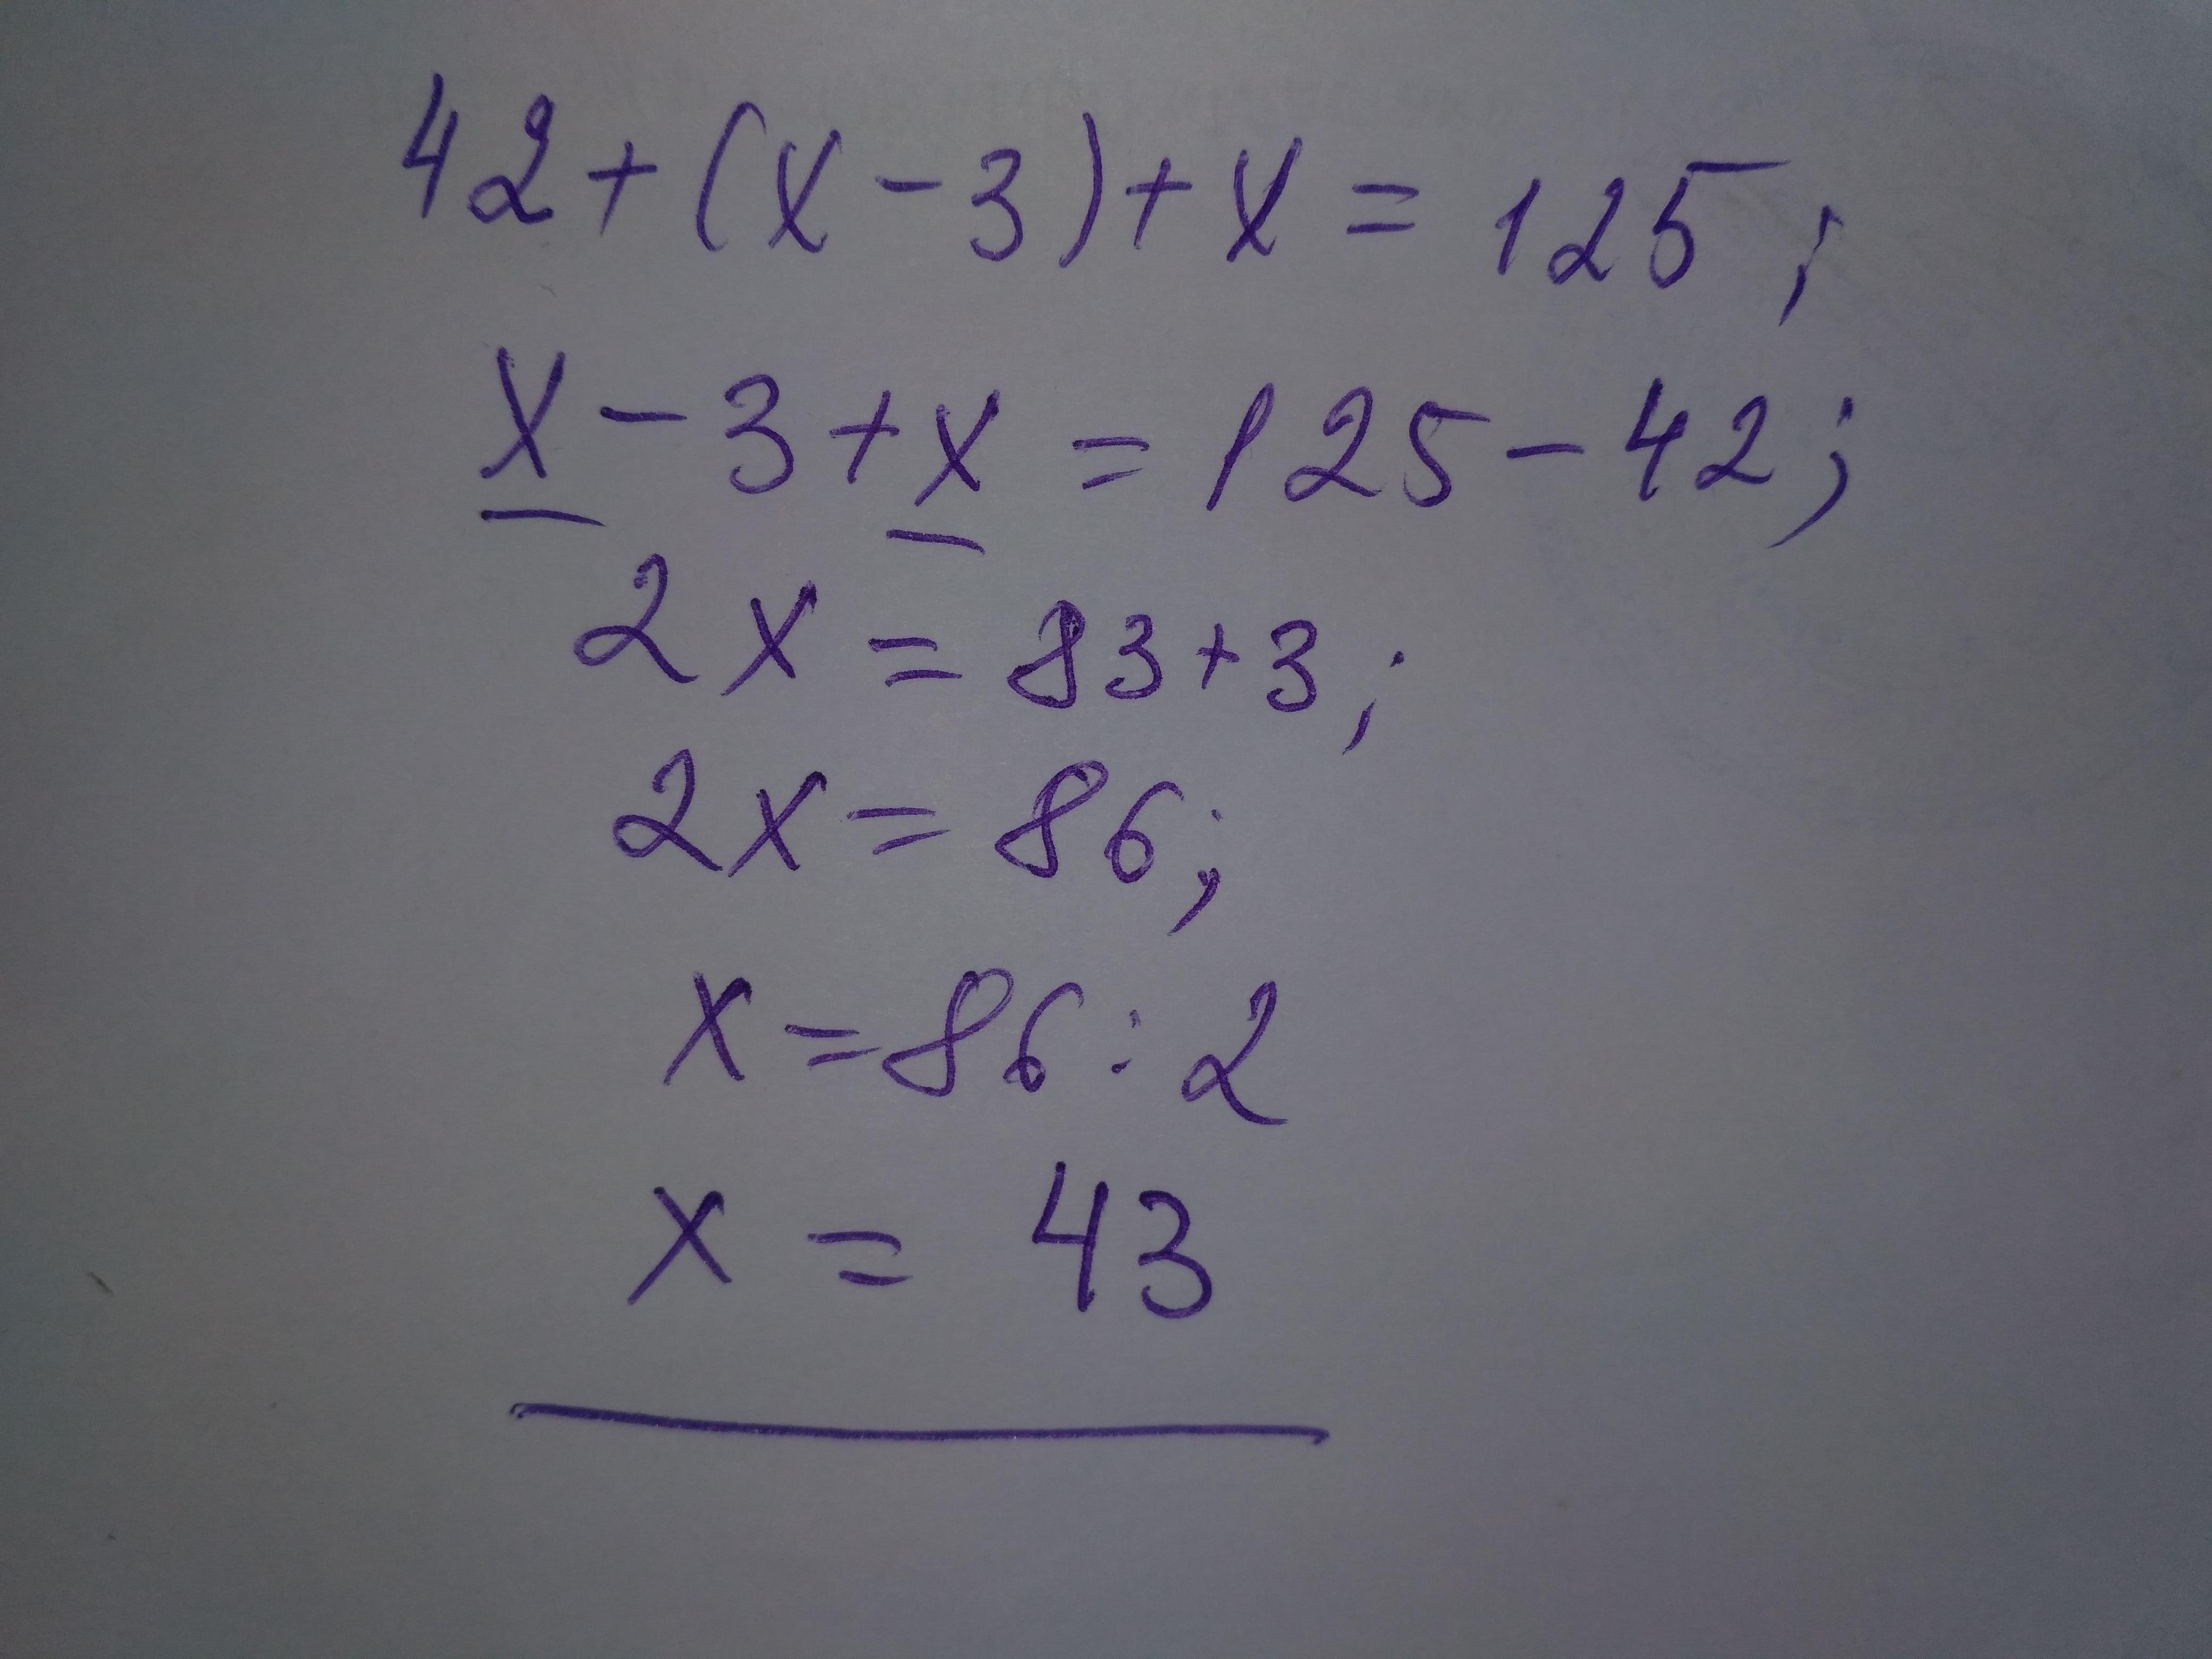 42+(x-3)+x=125;
x-3+x=125-42;
2x=83+3;
2x=86;
x=86:2
x=43